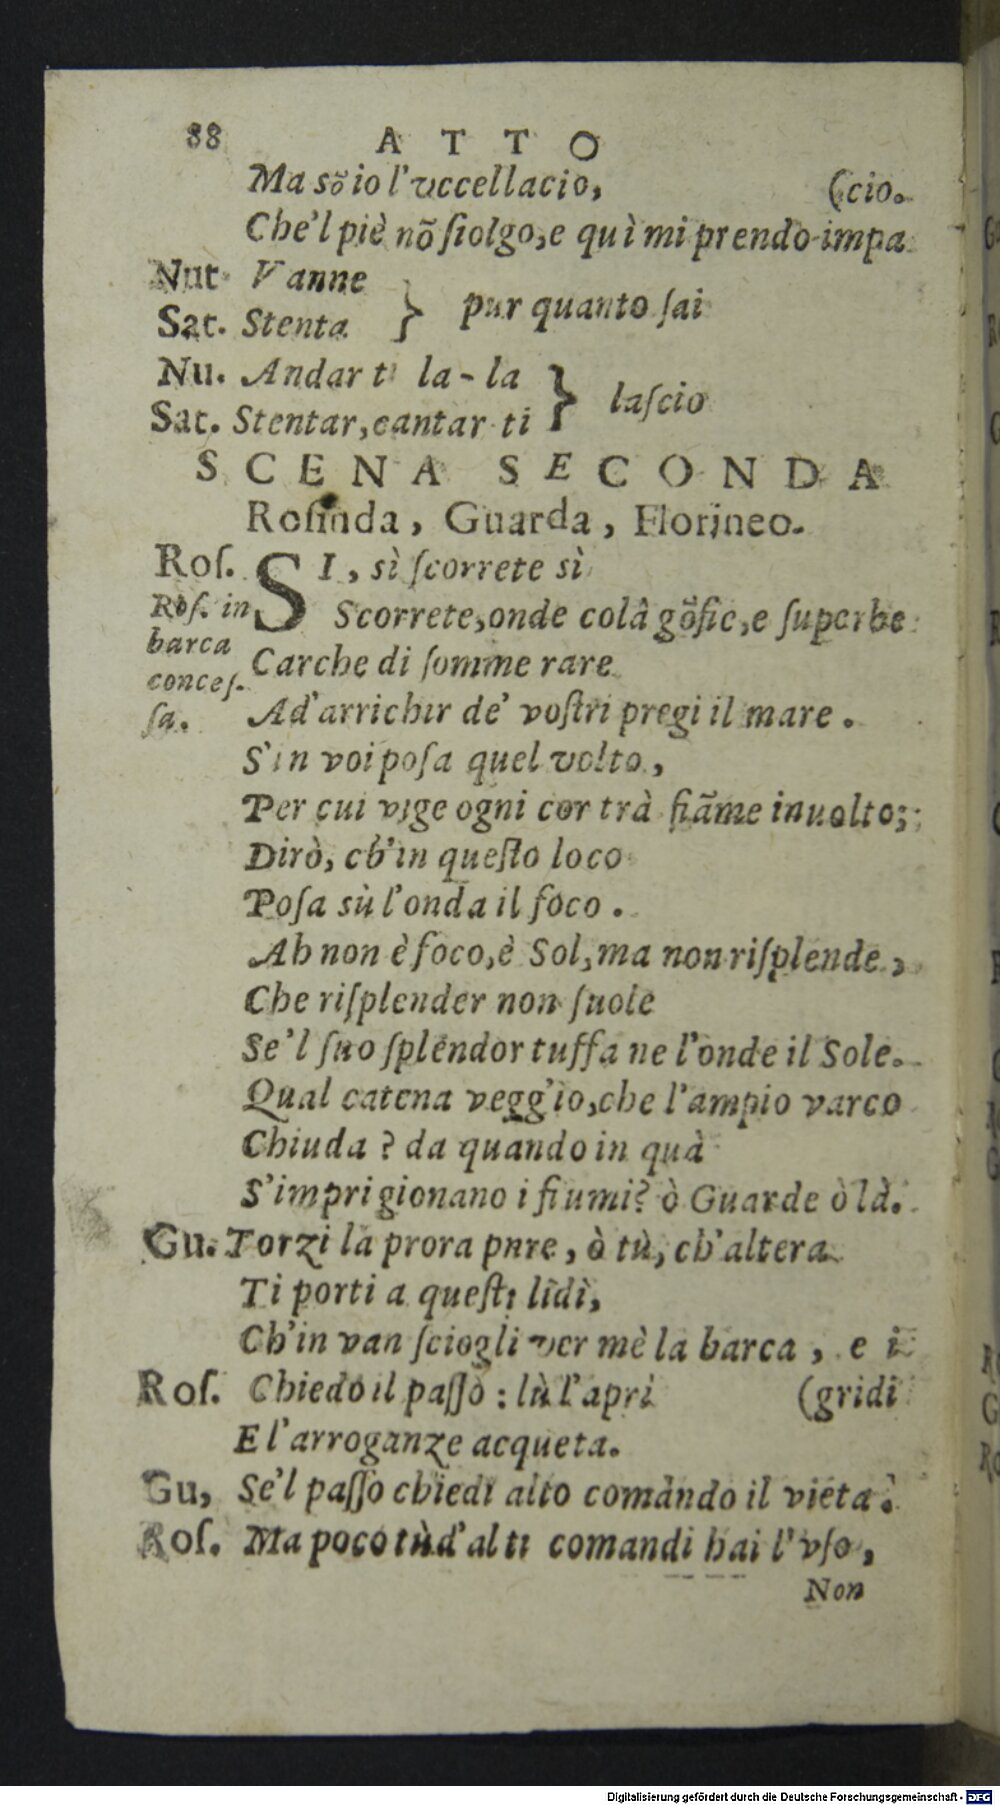 88 ATTO
Ma sõ io l'vccellacio, (cio.
Che'l piè nõ ſiolgo, e quì mi prendo impa
Nut Vanne } pur quanto ſai
Sat. Stenta
Nu. Andar ti la-la } laſcio
Sat. Stentar, cantar ti
SCENA SECONDA
Roſinda, Guarda, Florineo.
Roſ. SI, sì ſcorrete sì
Roſ. in barca conceſ- ſa.
Scorrete, onde colà gõfie, e ſuperbe
Carche di ſomme rare
Ad'arrichir de' voſtri pregi il mare.
S'in voi poſa quel volto,
Per cui vige ogni cor trà fiãme inuolto;
Dirò, ch'in queſto loco
Poſa sù l'onda il foco.
Ah non è foco, è Sol, ma non riſplende,
Che riſplender non ſuole
Se'l ſuo ſplendor tuffa ne l'onde il Sole.
Qual catena vegg'io, che l'ampio varco
Chiuda? da quando in quà
S'imprigionano i fiumi? ò Guarde ò là.
Gu. Torzi la prora pnre, ò tù, ch'altera
Ti porti a queſti lidi,
Ch'in van ſciogli ver mè la barca, e i
Roſ. Chiedo il paſſo: lù l'apri (gridi
E l'arroganze acqueta.
Gu, Se'l paſſo chiedi alto comàndo il vieta.
Roſ. Ma poco tù d'alti comandi hai l'vſo,
Non
Digitalisierung gefördert durch die Deutsche Forschungsgemeinschaft - DFG